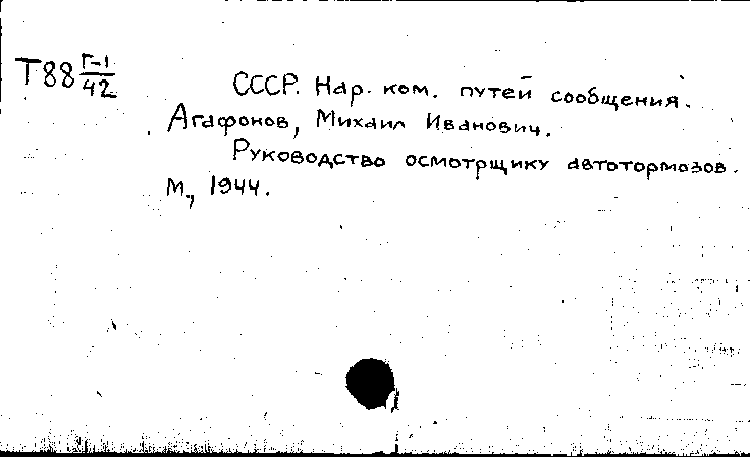 Т88 Г-1/42
СССР. Нар. ком. путей сообщения.
Агафонов, Михаил Иванович.
Руководство осмотрщику автотормозов.
М., 1944.